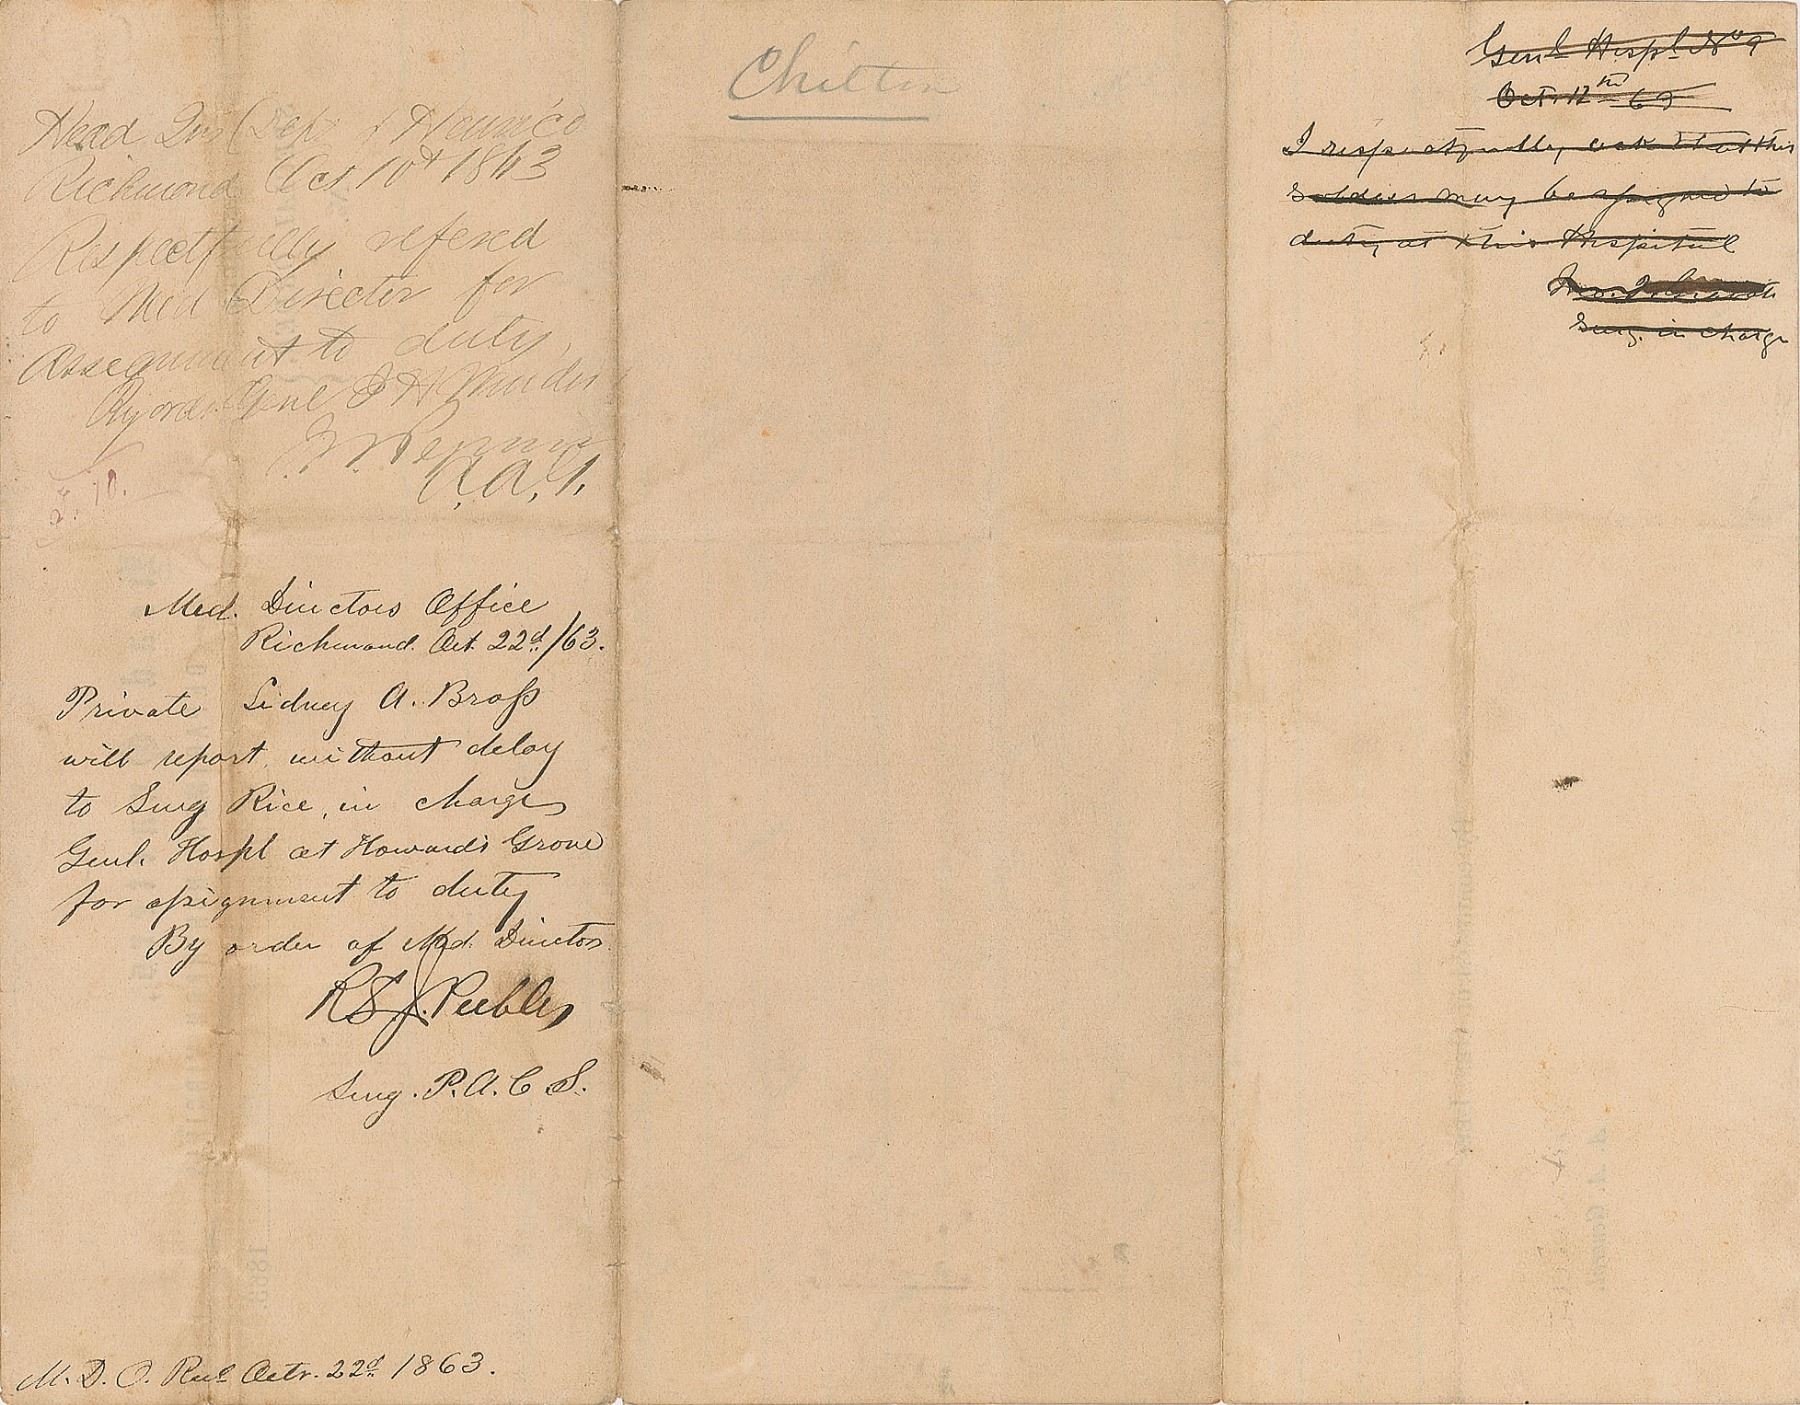 Head Qrs Dept of Henrico
Richmond Oct 10th 1863
Respectfully refered
to Med Director for
Assegnment to duty,
By order Genl J H Winder
A.A.G.
Med. Directors Office
Richmond. Oct. 22d./63.
Private Sidney A. Bross
will report without delay
to Surg Rice, in charge
Genl. Hospl at Howard's Grove
for assignment to duty
By order of Med. Director
R S J. Peebles
Surg. P. A. C S.
M. D. O. Recd Octr. 22d 1863.
Chilton
Genl Hospl No 9
Oct. 12th 63
I respectfully ask that this
Soldier may be assigned to
duty at this Hospital
Surg. in charge